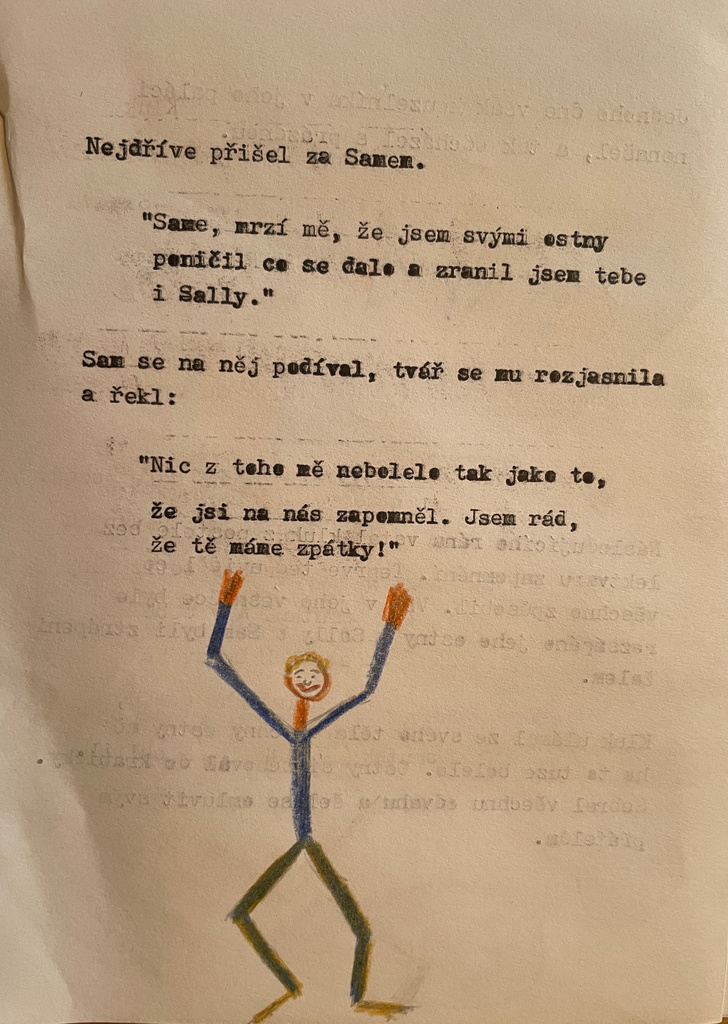 Nejdříve přišel za Samem.
"Same, mrzí mě, že jsem svými ostny
poničil co se dalo a zranil jsem tebe
i Sally."
Sam se na něj podíval, tvář se mu rozjasnila
a řekl:
"Nic z toho mě nebolelo tak jako to,
že jsi na nás zapomněl. Jsem rád,
že tě máme zpátky!"